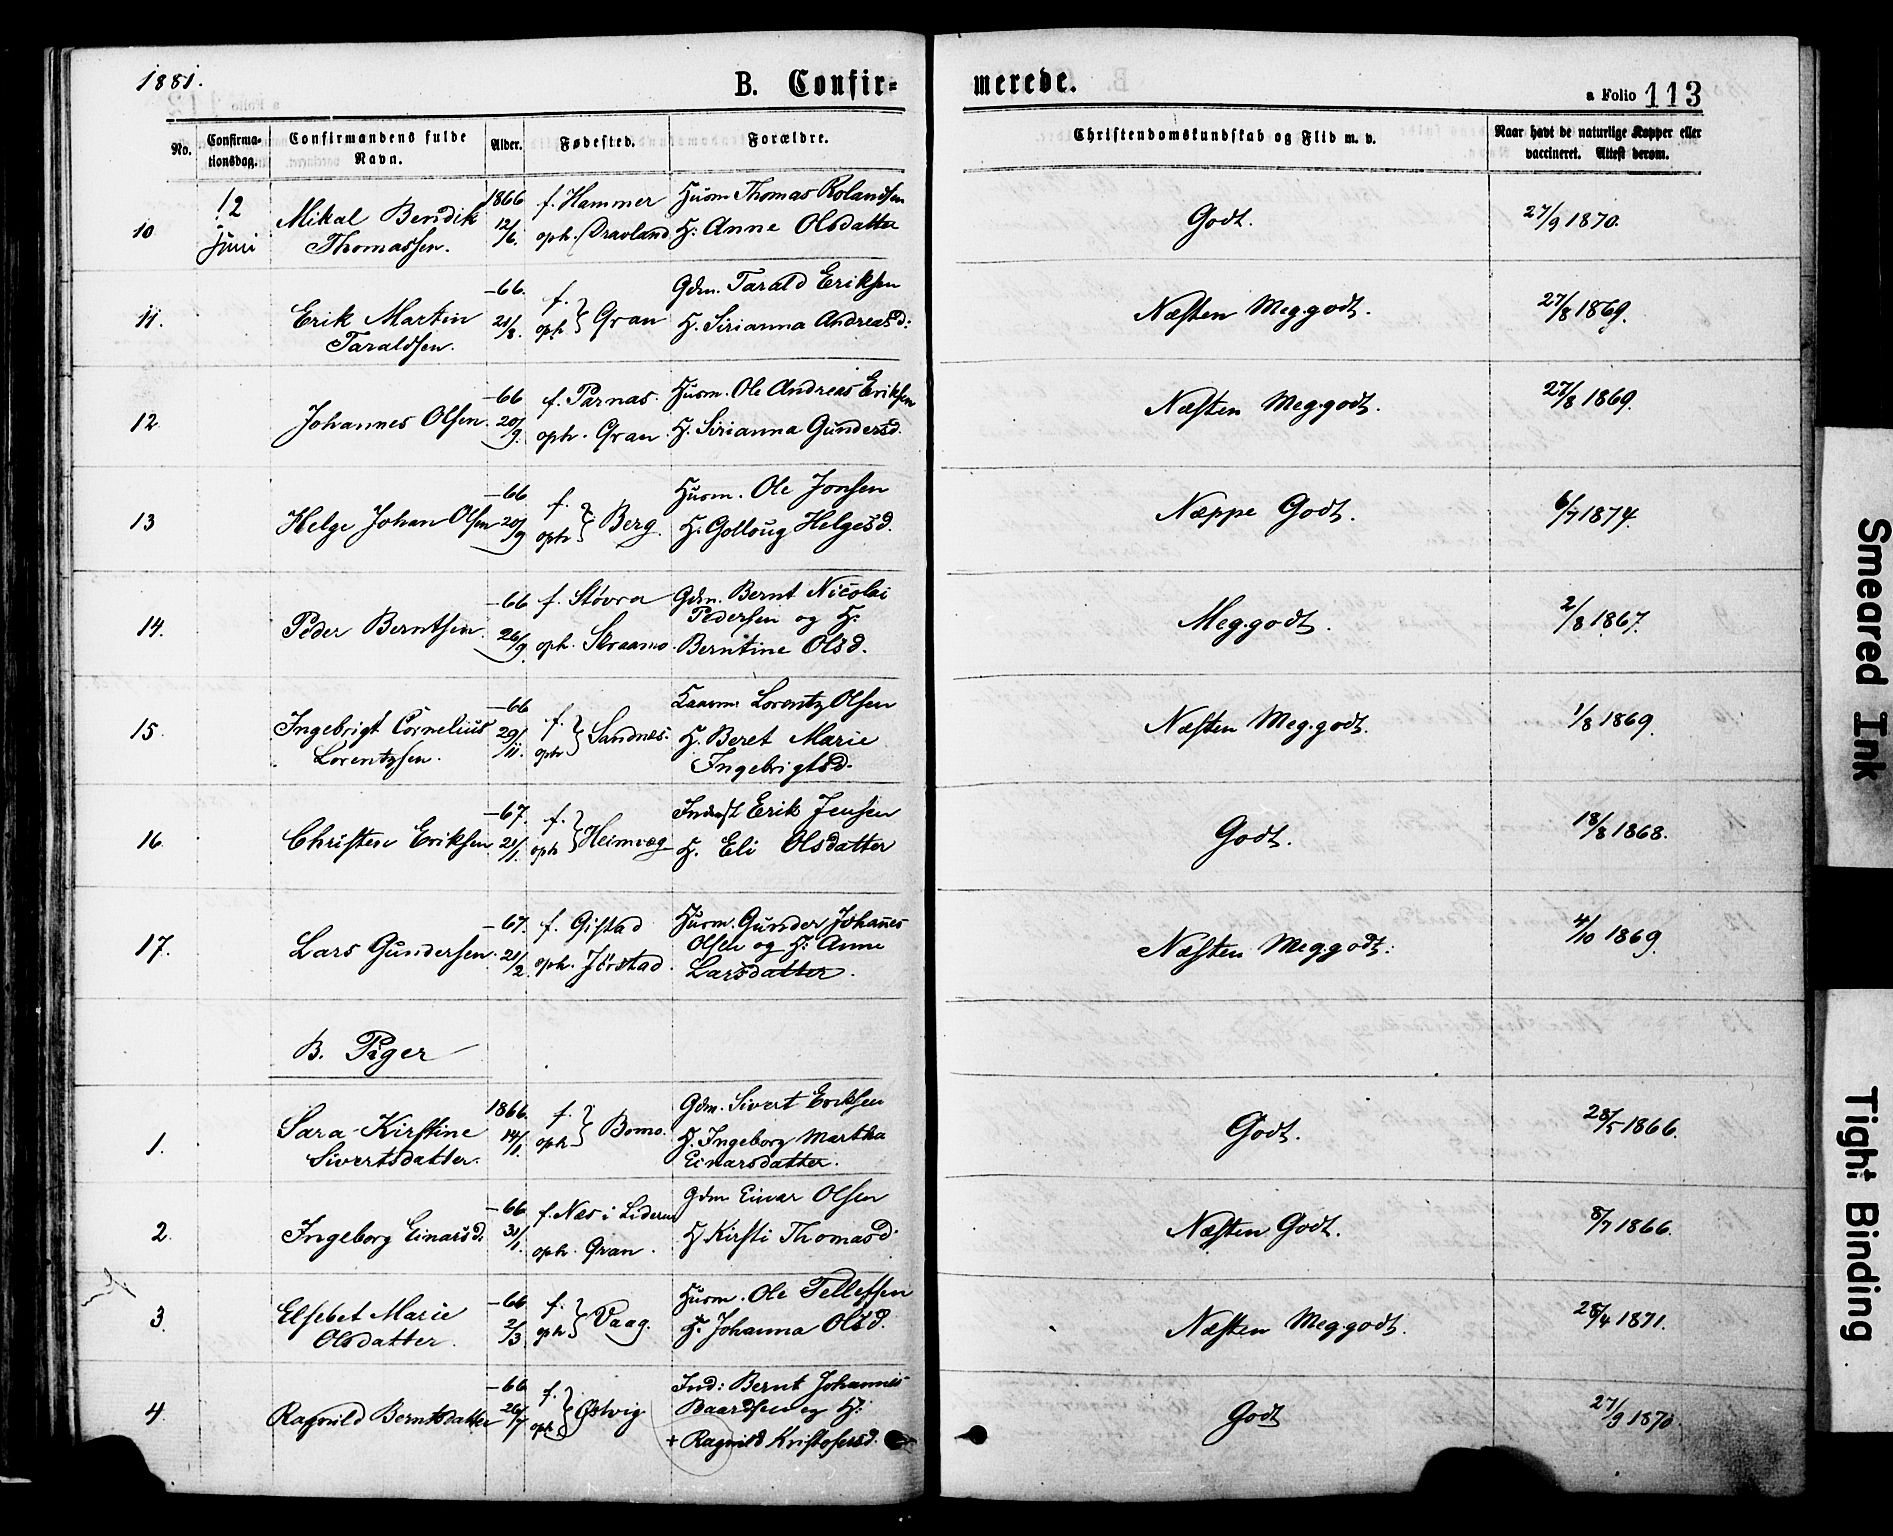 1881.
B. Confir-
merede.
a Folio 113
No. Confirma-tionsdag. Confirmandens fulde Navn. Alder. Fødested. Forældre. Christendomskundskab og Flid m. v. Naar havt de naturlige Kopper eller vaccineret. Attest derom.
12 Juni
10 Mikal Bendik 1866 f. Hammer Husm Thomas Rolandsen Godt. 27/9 1870.
Thomassen. 12/6. oph. H. Anne Olsdatter
11. Erik Martin -66. f. Gdm. Tarald Eriksen Næsten Meg.godt. 27/8 1869.
Taraldsen. 21/8. oph Gran H. Sirianna Andreasd:
12 Johannes Olsen. -66 f. Parnas. Husm. Ole Andreas Eriksen Næsten Meg.godt. 27/8 1869.
20/9. oph. Gran. H. Sirianna Gundersd.
13 Helge Johan Olsen -66 f. Husm. Ole Jonsen Neppe Godt. 6/7 1874.
20/9 oph Berg. H. Golloug Helgesd.
14. Peder Berntsen. -66 f. Støvra Gdm. Bernt Nicolai Meg.godt. 2/8 1867.
26/9. oph. Skraamo. Pedersen og H.
Berntine Olsd.
15. Ingebrigt Cornelius -66 f. Lorentz Olsen Næsten Meg.godt. 1/8 1869.
Lorentzsen. 29/11. oph Sandnes. H. Beret Marie
Ingebrigtsd.
16. Christen Eriksen -67. f. Inderst Erik Jensen Godt. 18/8 1868.
21/1. oph Heimveg H. Eli Olsdatter
17. Lars Gundersen. -67. f. Gistad Husm. Gunder Johanes Næsten Meg.godt: 4/10 1869.
21/2. oph. Jørstad. Olsen og H: Anne
Larsdatter.
B. Piger
1. Sara Kirstine 1866. f. Gdm. Sivert Eriksen Godt. 28/5 1866.
Sivertsdatter. 14/1. oph Bomo. H. Ingeborg Martha
Einarsdatter.
2. Ingeborg Einarsd. -66 f. Næs i Lideren Gdm Einar Olsen Næsten Godt. 8/7 1866.
31/1. oph. Gran. H Kirsti Thomasd.
3. Elsebet Marie -66 f. Husm. Ole Tellefsen Næsten Meg.godt. 28/4 1871.
Olsdatter. 2/3. oph Vaag. H. Johanna Olsd.
4 Ragnild Berntsdatter -66 f. Ind: Bernt Johannes Godt 27/9 1870
26/7 oph Østvig Baardsen og H:
+ Ragnild Kristofersd.
Smeared Ink
Tight Binding